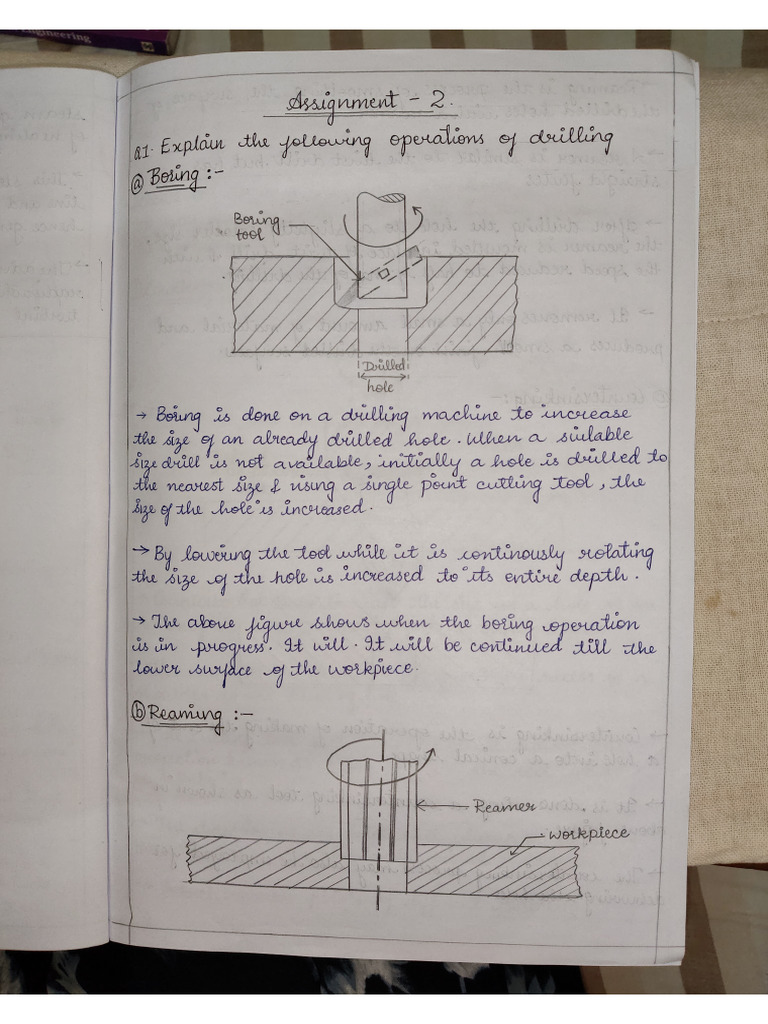 Engineering
Assignment - 2.
Q1. Explain the following operations of drilling
(a) Boring :-
Boring
tool
Drilled
hole
→ Boring is done on a drilling machine to increase
the size of an already drilled hole. When a suilable
size drill is not available, initially a hole is drilled to
the nearest size & using a single point cutting tool, the
size of the hole is increased.
→ By lowering the tool while it is continously rotating
the size of the hole is increased to its entire depth.
→ The above figure shows when the boring operation
is in progress. It will. It will be continued till the
lower surface of the workpiece.
(b) Reaming :-
Reamer
workpiece